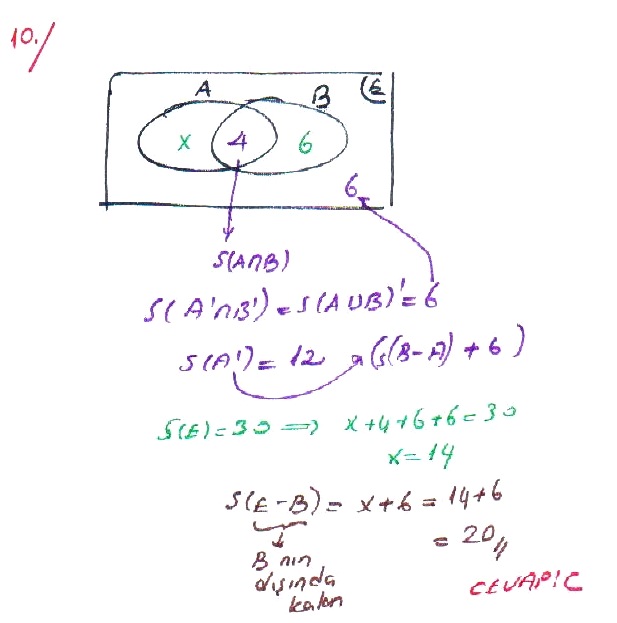 10./
A B E
x 4 6
6
S(A∩B)
S(A'∩B') = S(A∪B)' = 6
S(A') = 12 (S(B-A) + 6)
S(E) = 30 ⟹ x+4+6+6 = 30
x = 14
S(E-B) = x+6 = 14+6
= 20//
B nın
dışında
kalan
CEVAP: C